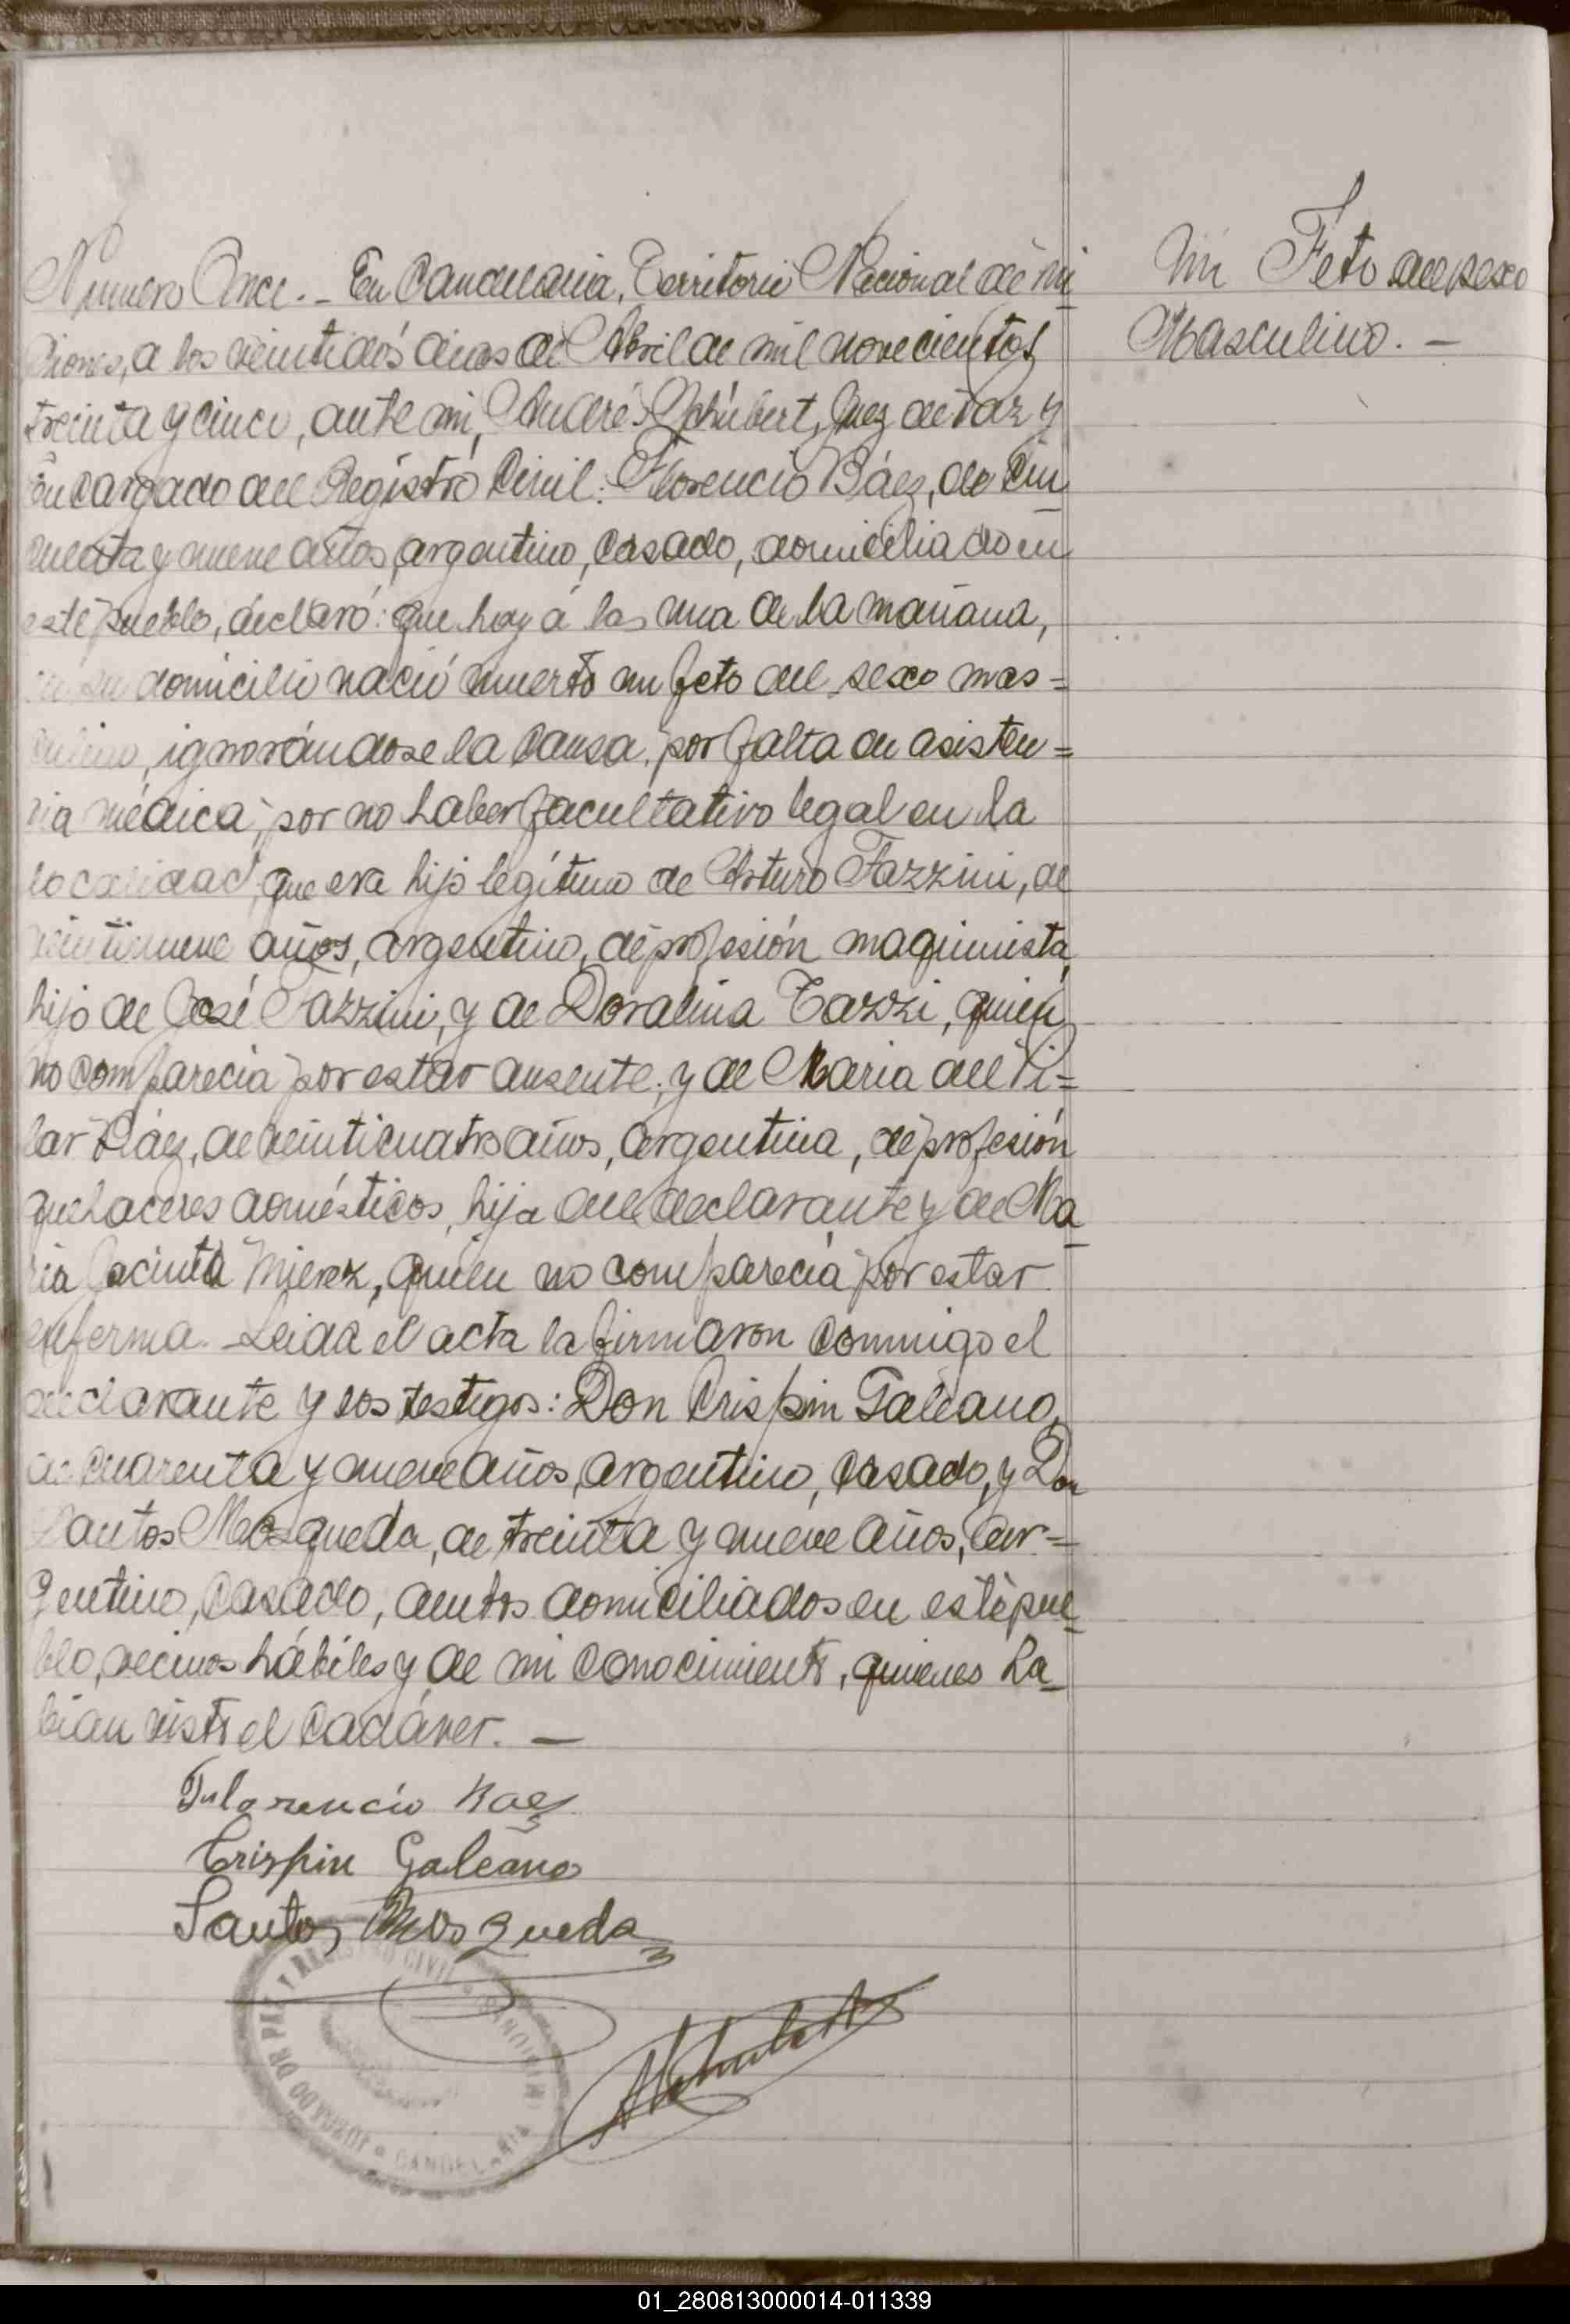 Número Once. - En Candelaria, Territorio Nacional de Mi-
siones, a los veintidós dias de Abril de mil novecientos
treinta y cinco, ante mi, Andrés Schubert, Juez de Paz y
Encargado del Registro Civil: Florencio Báez, de cin-
cuenta y nueve años, argentino, casado, domiciliado en
este pueblo, declaró: que hoy á las una de la mañana,
en su domicilio nació muerto un feto del sexo mas=
culino, ignorándose la causa, por falta de asisten=
cia médica, por no haber facultativo legal en la
localidad, que era hijo legítimo de Arturo Fazzini, de
veintinueve años, argentino, de profesión maquinista,
hijo de José Fazzini, y de Doralina Tazzi, quien
no comparecia por estar ausente; y de Maria del Pi=
lar Báez, de veinticuatro años, argentina, de profesión
quehaceres domésticos, hija del declarante y de Ma-
ria Jacinta Mierez, quien no comparecia por estar
enferma. - Leida el acta la firmaron conmigo el
declarante y los testigos: Don Crispin Galeano,
de cuarenta y nueve años, argentino, casado, y Don
Santos Mosqueda, de treinta y nueve años, ar=
gentino, casado, ambos domiciliados en este pue-
blo, vecinos hábiles y de mi conocimiento, quienes ha-
bian visto el cadáver. —
Florencio Baez
Crispin Galeano
Santos Mosqueda
JUZGADO DE PAZ Y REGISTRO CIVIL
CANDELARIA
MISIONES
Un Feto del sexo
Masculino. —
01_280813000014-011339